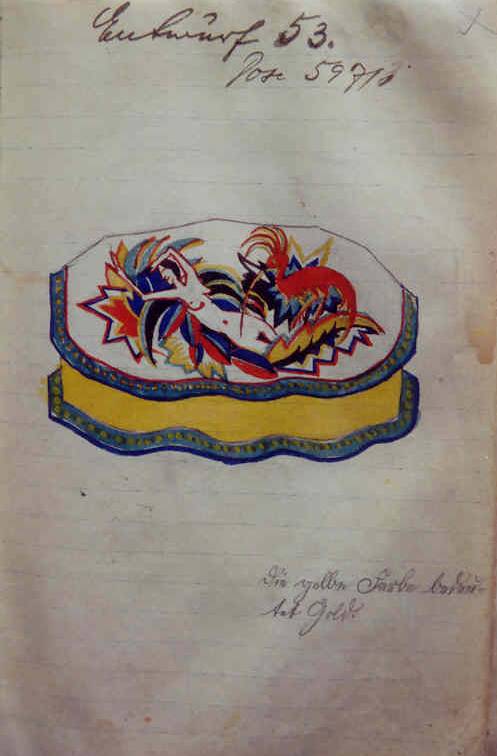 Entwurf 53.
Dose 5971
die gelbe Farbe bedeu-
tet Gold.